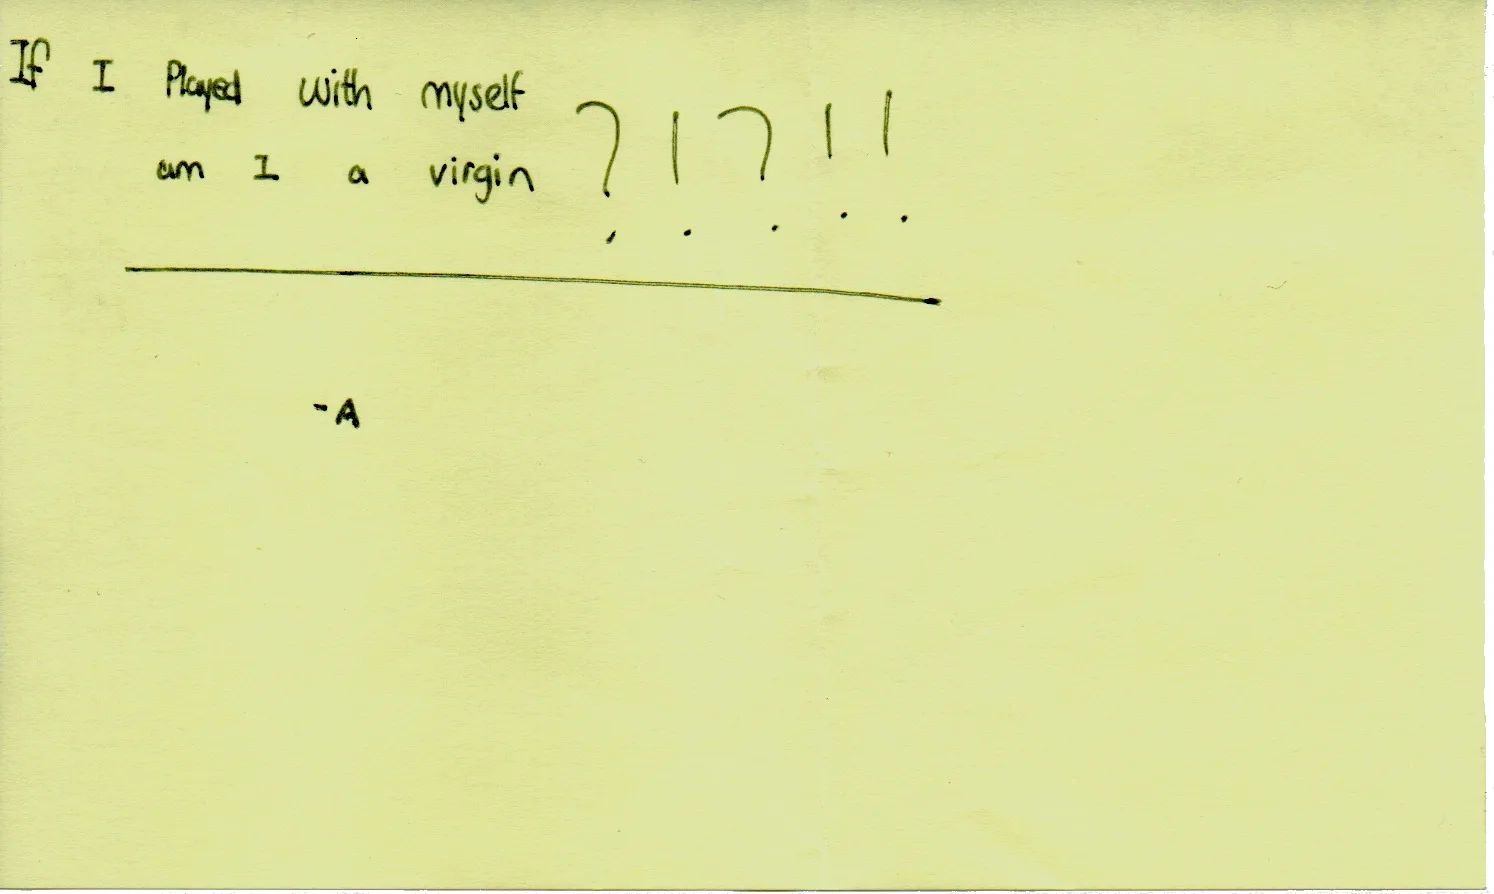 If I Played with myself
am I a virgin ?!?!!
-A